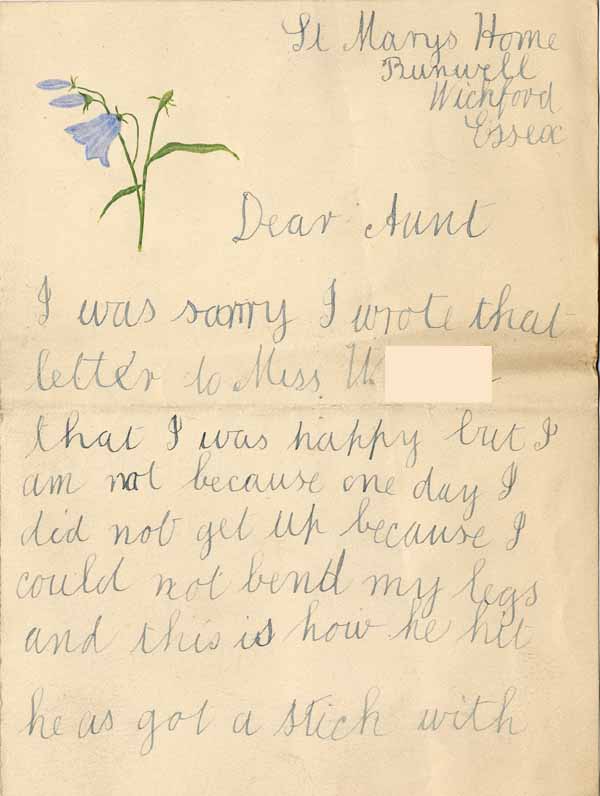 St Marys Home
Runwell
Wichford
Essex
Dear Aunt
I was sorry I wrote that
letter to Miss W
that I was happy but I
am not because one day I
did not get up because I
could not bend my legs
and this is how he hit
he as got a stick with